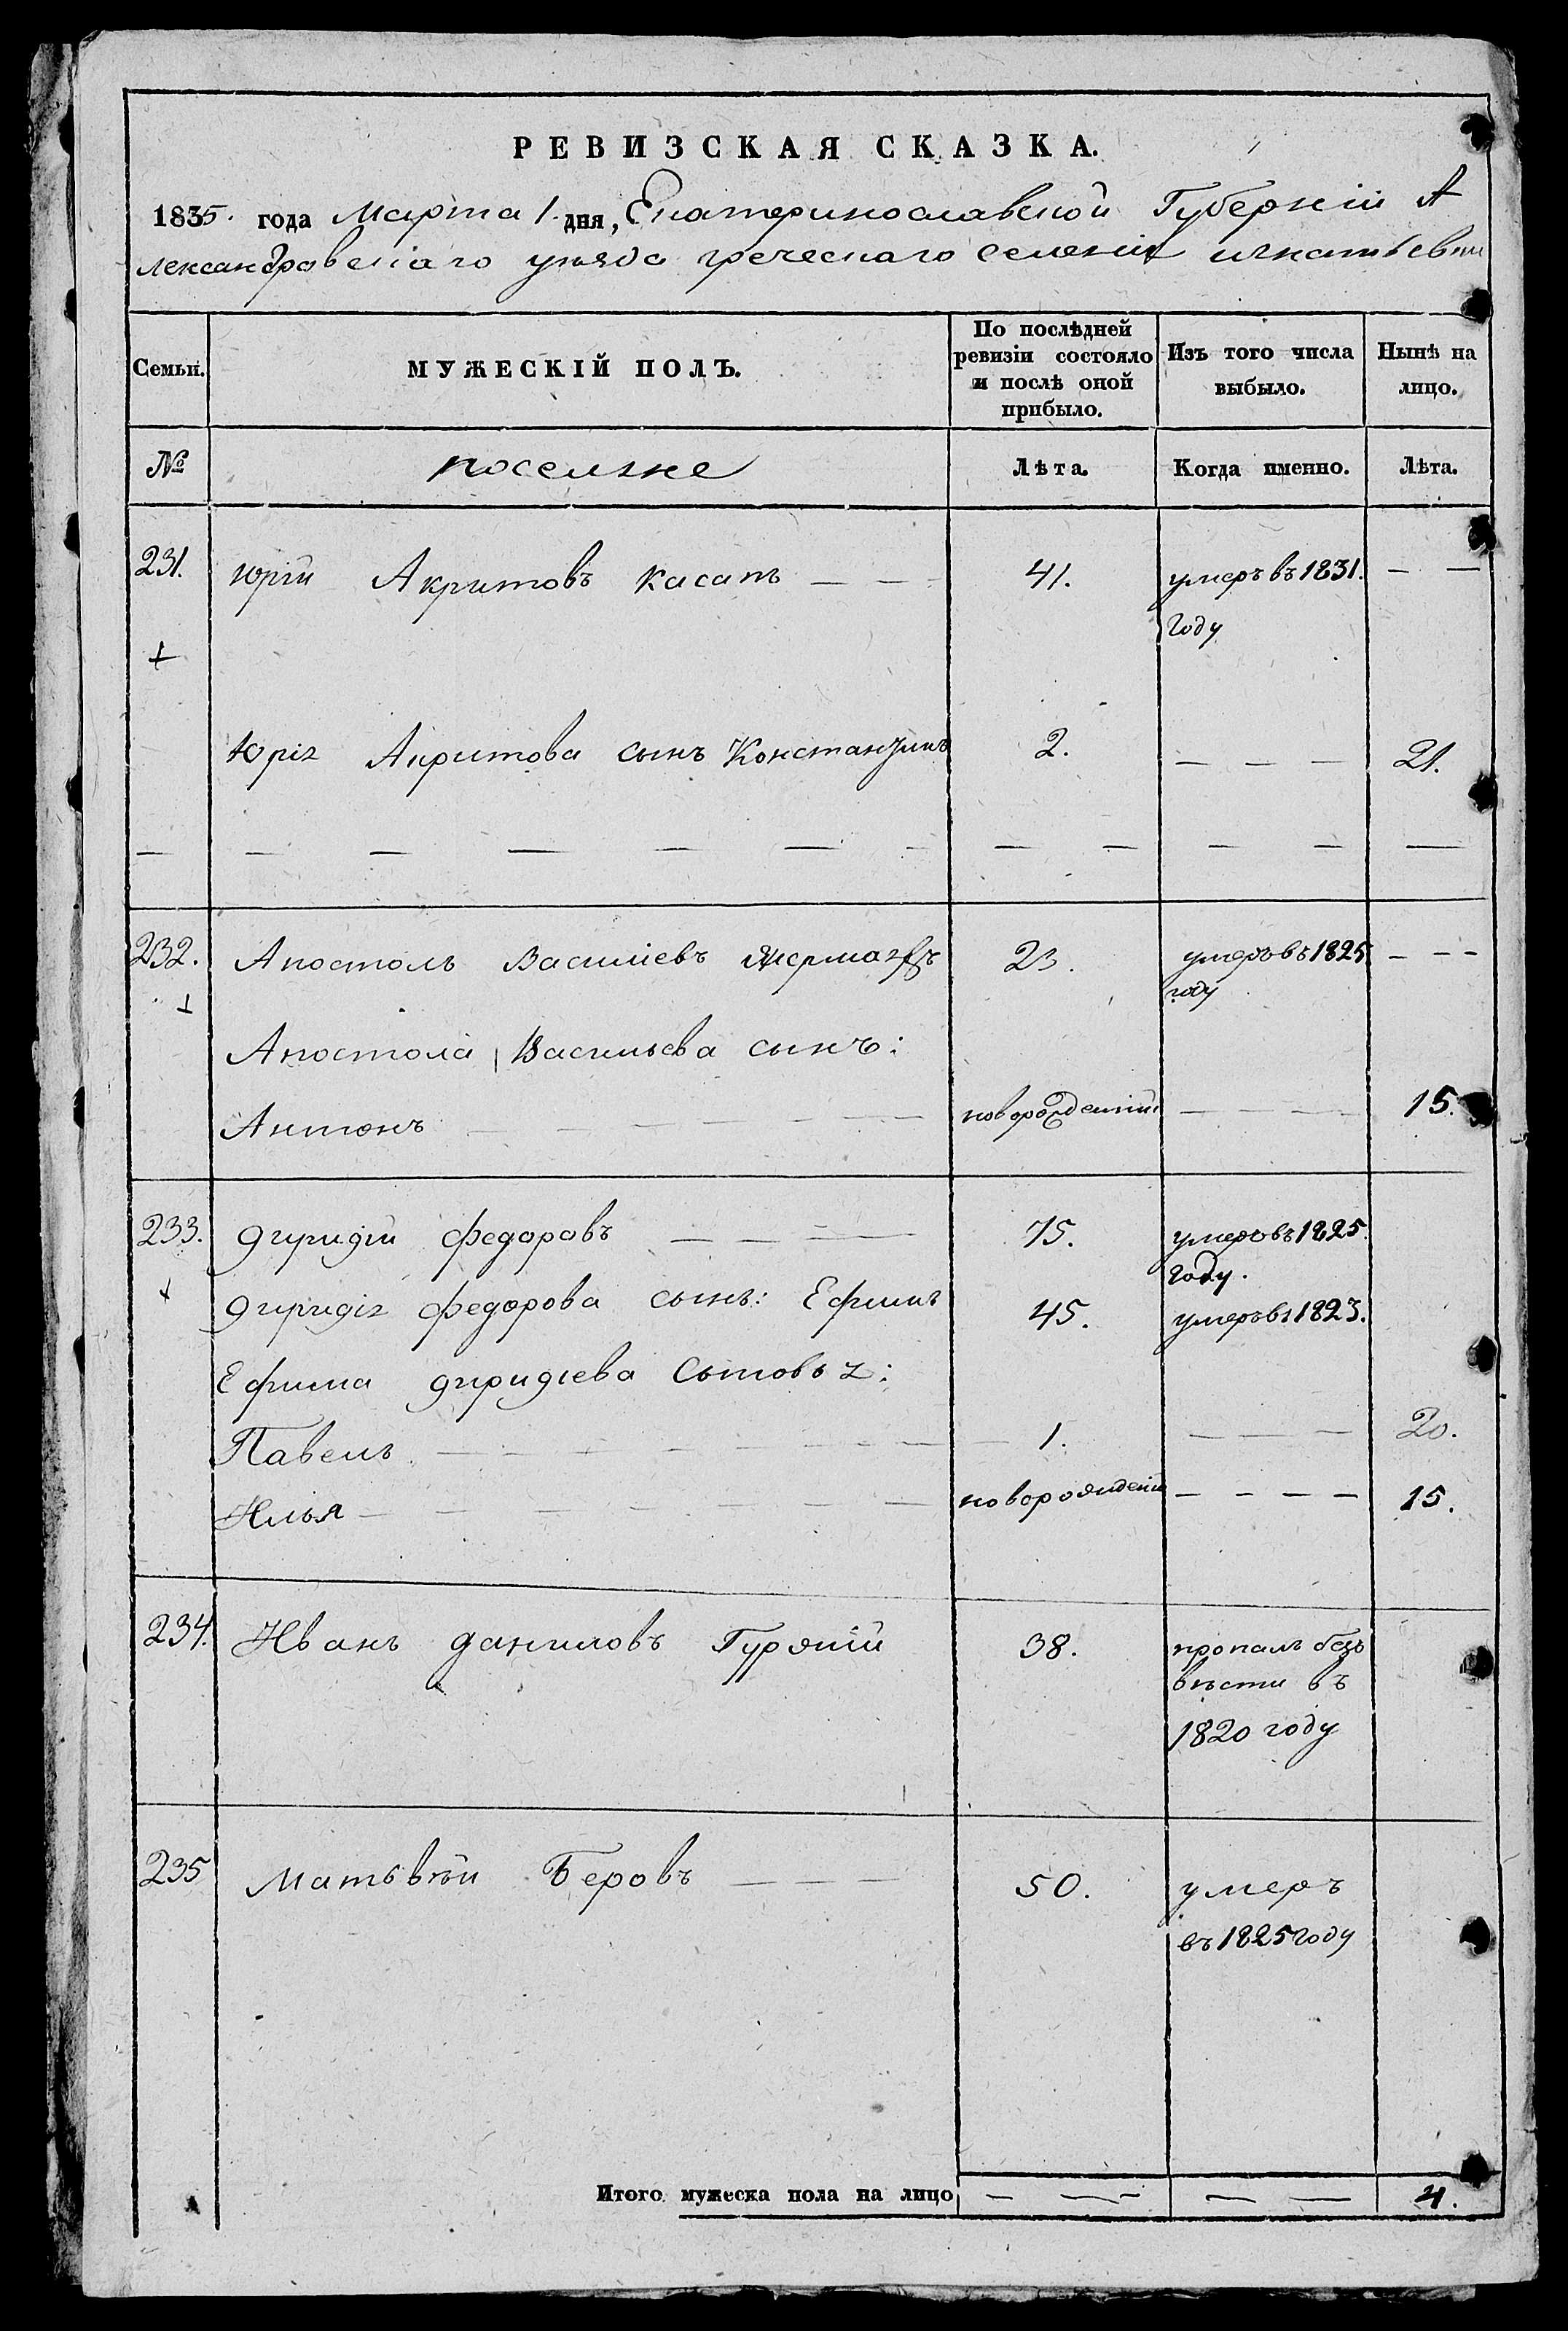 РЕВИЗСКАЯ СКАЗКА.
1835. года Марта 1. дня, Екатеринославской Губерніи А
лександровскаго уѣзда греческаго селенія игнатьевки
Семьи. МУЖЕСКІЙ ПОЛЪ. По послѣдней ревизіи состояло и послѣ оной прибыло. Изъ того числа выбыло. Нынѣ на лицо.
№ поселяне Лѣта. Когда именно. Лѣта.
231. юрій Акритовъ касапъ — — 41. умеръ въ 1831. — —
году
Юрія Акритова сынъ Константинъ 2. — — — 21.
232. Апостолъ Василіевъ 23. умеръ въ 1825 — - -
году
Апостола Васильева сынъ:
Антонъ — — — новорожденный — — — 15.
233. дгиридій федоровъ — — — 75. умеръ въ 1825.
году.
федорова сынъ: Ефимъ 45. умеръ въ 1823.
Ефима сыновья:
Павелъ — — — 1. — — — 20.
Илья — — — новорожденій — — — — 15.
234. Иванъ даниловъ 38. пропалъ безъ
вѣсти въ
1820 году
235 Матьвѣй Беровъ — — — 50. умеръ
въ 1825 году
Итого мужеска пола на лицо — — — — 4.